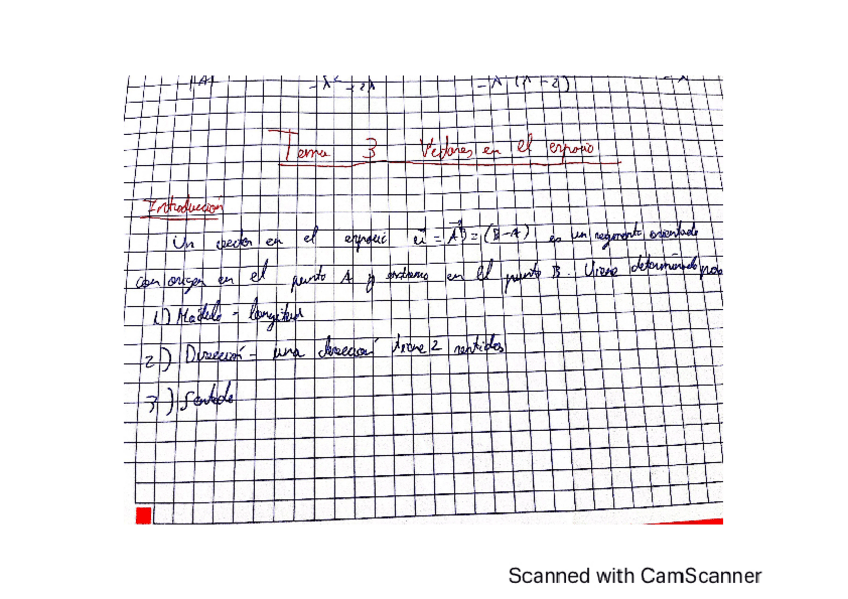 Tema 3 Vectores en el espacio
Introducción
Un vector en el espacio u = AB = (B-A) es un segmento orientado
con origen en el punto A y extremo en el punto B. Viene determinado por
1) Módulo - longitud
2) Dirección - una dirección tiene 2 sentidos
3) Sentido
Scanned with CamScanner